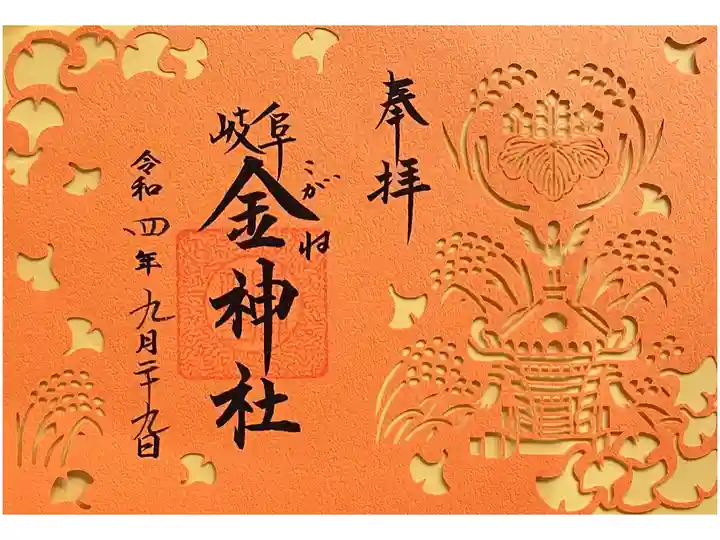 奉拝
岐阜
金神社
こがね
令和四年九月二十九日